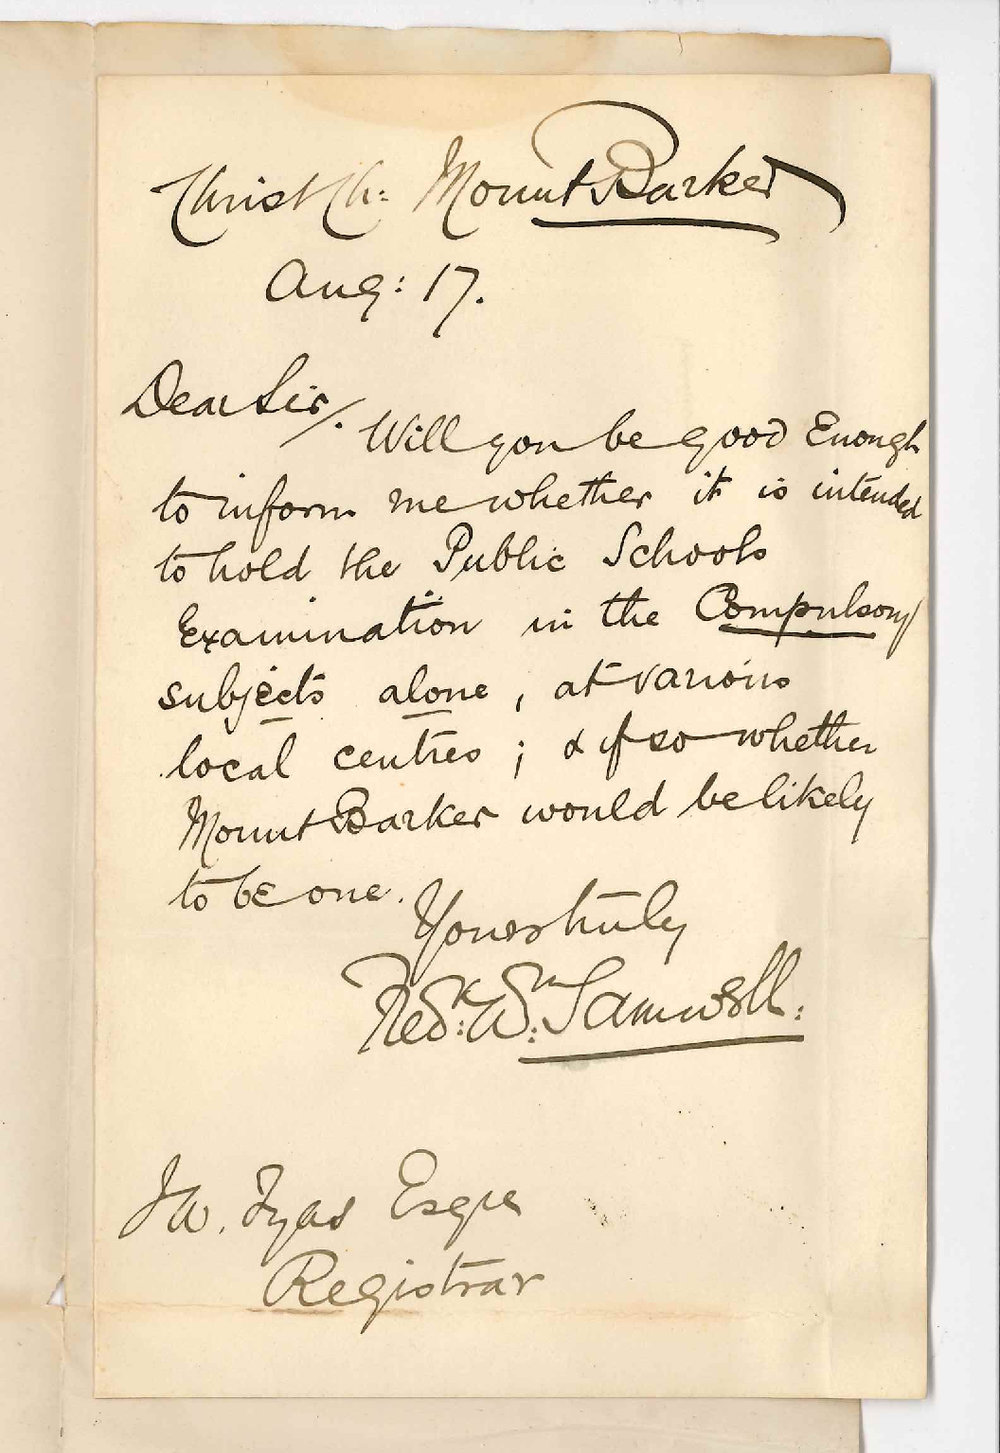 Christ Ch: Mount Barker
Aug: 17.
Dear Sir/.
Will you be good Enough
to inform me whether it is intended
to hold the Public Schools
Examination in the Compulsory
subjects alone, at various
local centres; & if so whether
Mount Barker would be likely
to be one.
Yours truly
Fredk: Wm: Samwell.
J W. Tyas Esqre
Registrar